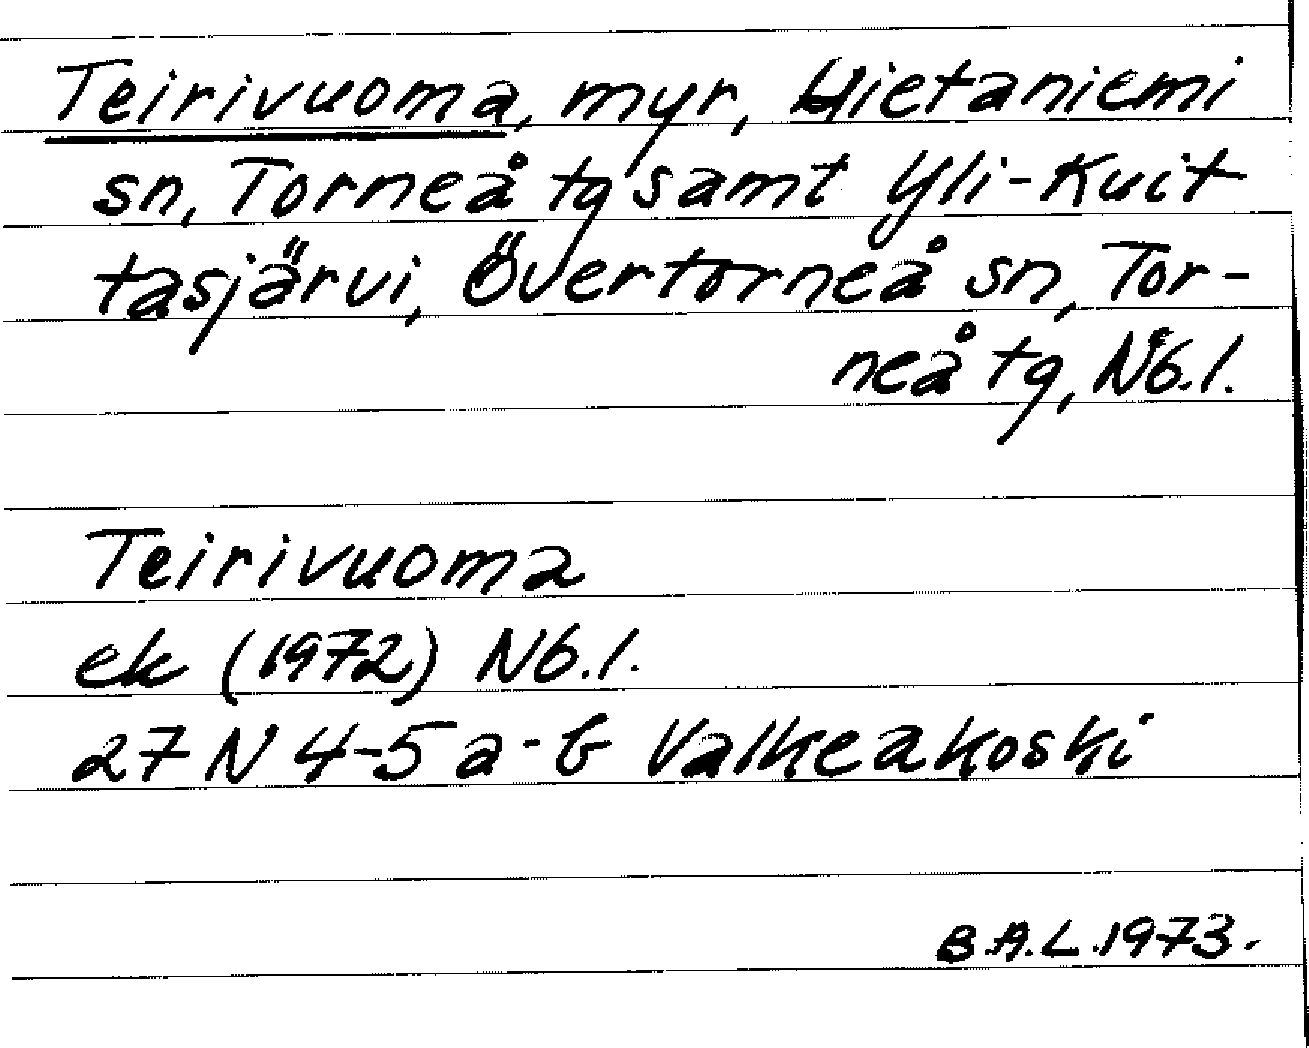 Teirivuoma, myr, Hietaniemi
sn, Torneå tg samt Yli-Kuit
tasjärvi, Övertorneå sn, Tor-
neå tg, Nb.l.
Teirivuoma
ek (1972) Nb.l.
27 N 4-5 a-b Valkeakoski
B.A.L. 1973.